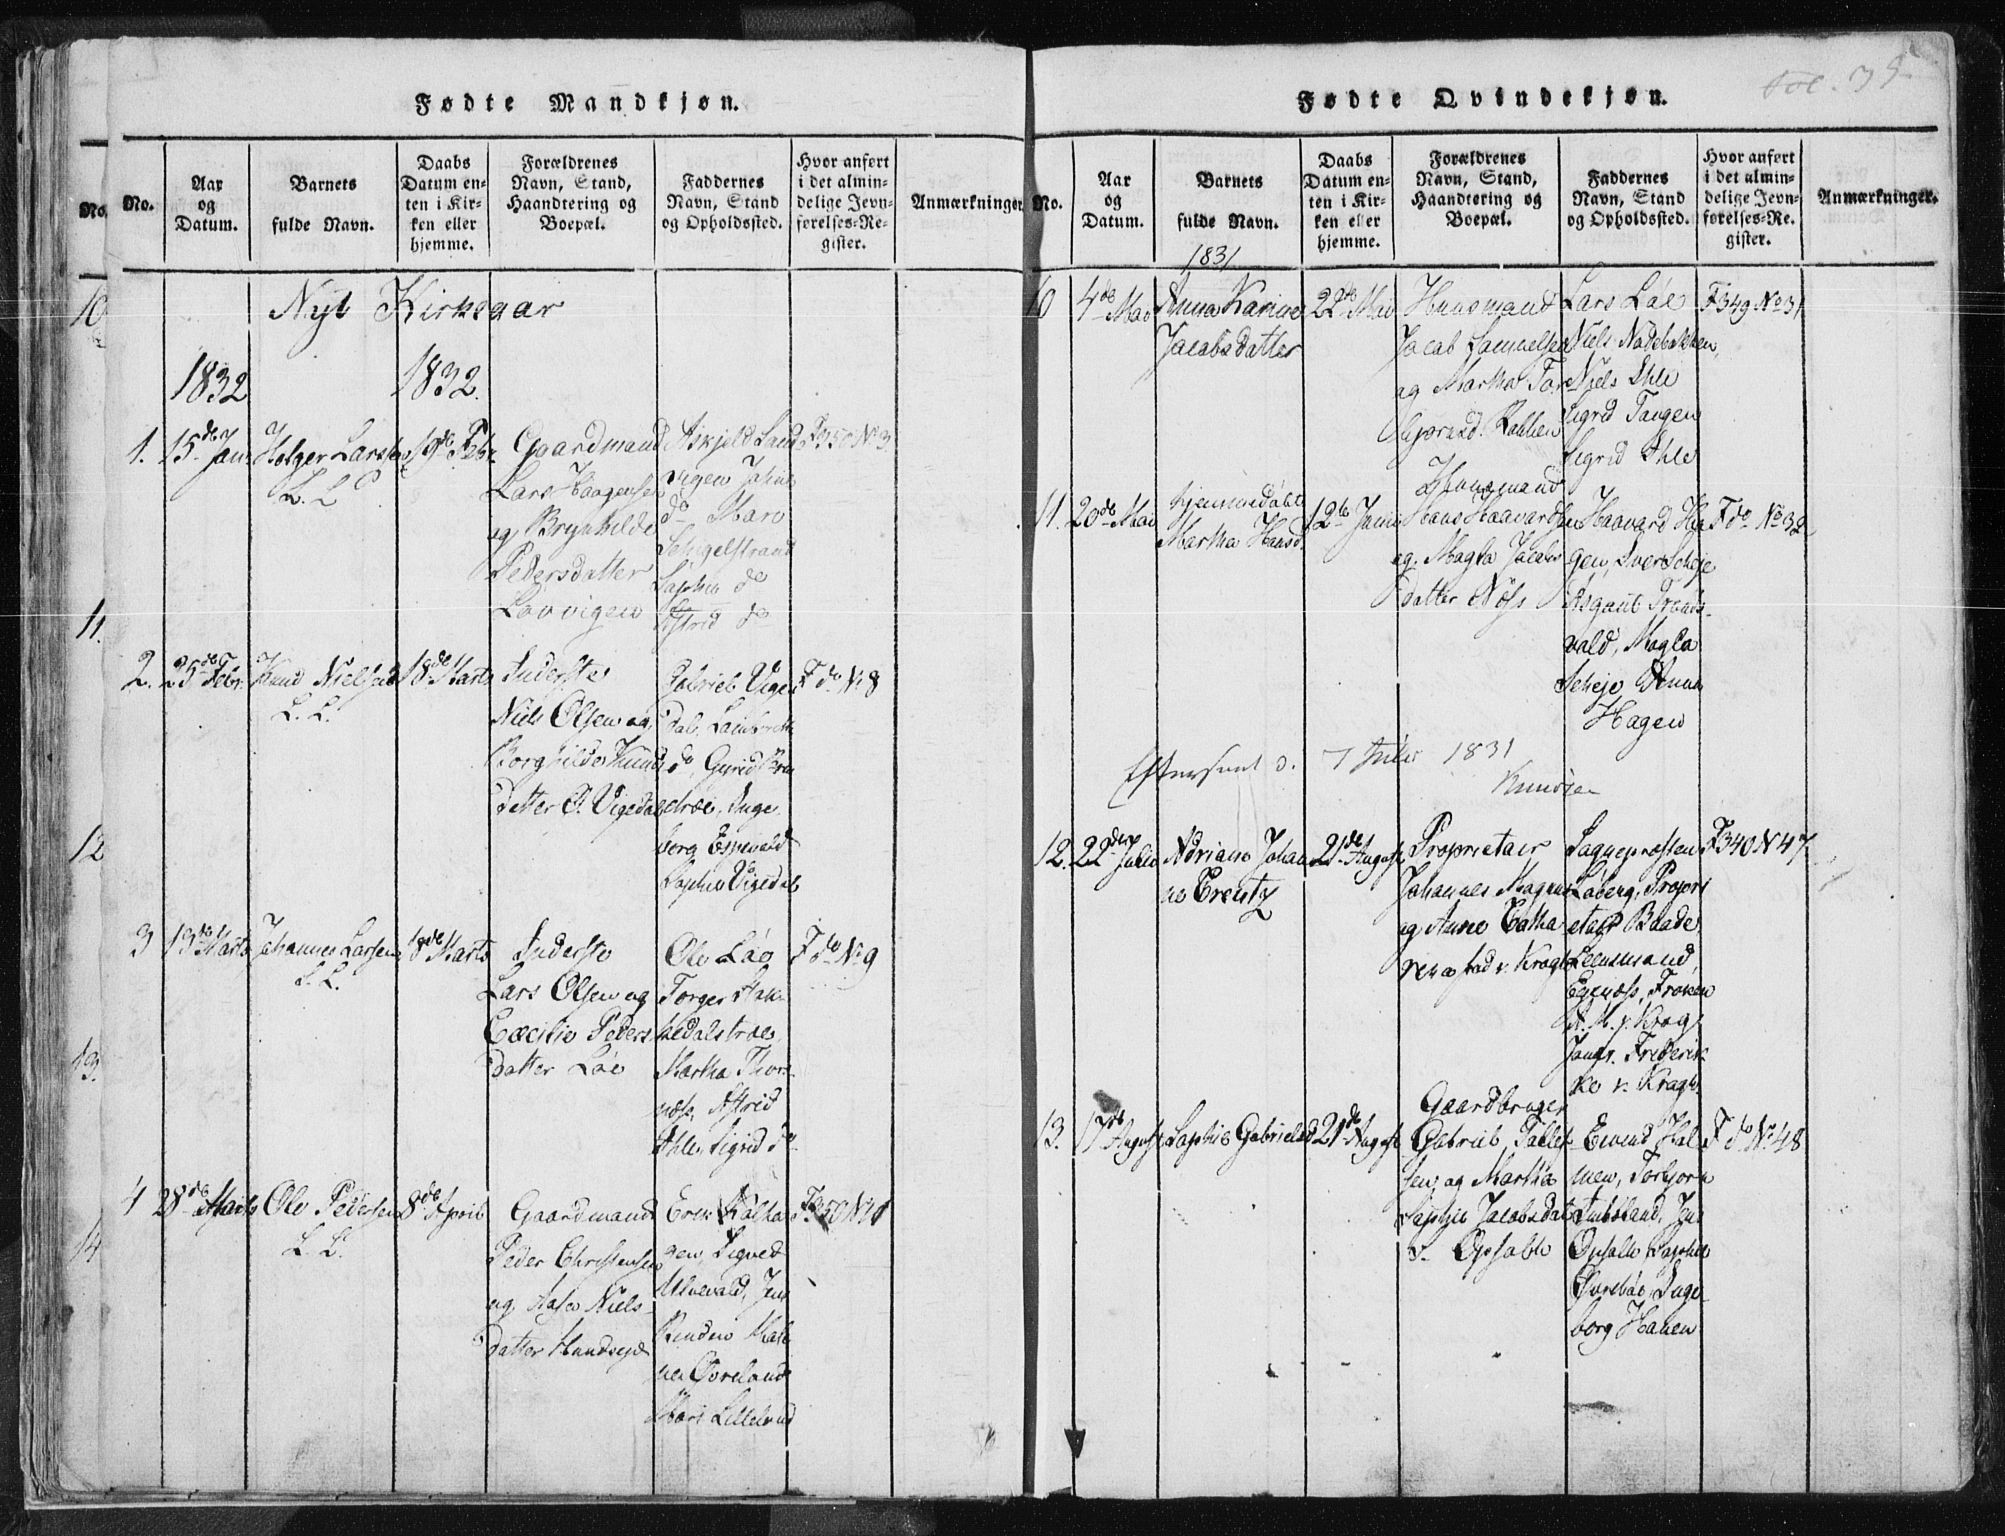 Fødte Mandkjøn.
No.
No.
Aar
og
Datum.
Barnets
fulde Navn.
Daabs
Datum en-
ten i Kir-
ken eller
hjemme.
Forældrenes
Navn, Stand,
Haandtering og
Boepæl.
Faddernes
Navn, Stand
og Opholdssted.
Hvor anført
i det almin-
delige Jevn-
førelses-Re-
gister.
Anmærkninger
10
11.
12
13.
14
Nyt Kirkeaar
1832
1832.
1.
15de Jan.
Holger Larsen
L. L
19de Febr.
Gaardmand
Lars Haagensen
og Brynhilde
Pedersdatter
Løvvigen
Askjeld Land
vigen
do Mari
Sophie do
Astrid do
F 350 No 3
2.
25de Febr.
Knud Nielsen
L. L.
18de Marts
Inderste
Niels Olsen og
Borghilde Knuds
datter O. Vigedal
Gabriel Vige
dal,
do, Gyrid
stroe, Inge
borg Espevald
Sophie Vigedal
F do No 8
3
13de Marts
Johannes Larsen
L. L.
18de Marts
Inderste
Lars Olsen og
Cæcilie Peders
datter Løe
Ole Løe
Torger Hak
kedalstroe
Martha Thors
næss, Astrid
Ihle, Sigrid do
F do No 9
4
28de Marts
Ole Pedersen
L. L.
8de April
Gaardmand
Peder Christensen
og Aase Niels-
datter Hundseje
Erik
gen, Sigved
Ulvevald, Jens
Øvreland
Mari
F 350 No 10
Fødte Qvindekjøn.
Fol. 35
No.
Aar
og
Datum.
Barnets
fulde Navn.
Daabs
Datum en-
ten i Kir-
ken eller
hjemme.
Forældrenes
Navn, Stand,
Haandtering og
Boepæl.
Faddernes
Navn, Stand
og Opholdssted.
Hvor anført
i det almin-
delige Jevn-
førelses-Re-
gister.
Anmærkninger.
1831
10
4de Mai
Anna Karine
Jacobsdatter
22de Mai
Huusmand
Jacob Samuelsen
og Martha Tor
Lars Løe
Niels Nødebakken,
Niels Ihle
Sigrid Tangen
Sigrid Ihle
F 349 No 31
11.
20de Mai
hjemmedøbt
Martha Hansd.
12te Juni
Huusmand
Hans Haavardsen
og Magla Jacobs
datter Nöss
Haavard Ha
gen, Iver Scheje
Asgaut Trands-
vald, Magla
Scheje
Hagen
F do No 32
Efterseet d. 7 Julii 1831
Knudsen
12.
22den Julii
Adriane Johan
ne Creutz
21de August
Proprietair
Johannes Magnus
og Anne Catha
v. Krogh
Sognepræsten
Løberg, Propri
etair Baade,
Leensmand
Egenæss, Frøken
A. M. v. Krogh
Jomfr. Frederik
ke v. Krogh
F 340 N 47
13.
17de August
Sophie Gabrielsd
21de August
Gaardbruger
Gabriel Tollef
sen, og Martha
Sophie Jacobsdat
r. Opsahl
Eivind Hal
men, Torbjørn
Imbsland, Jens
Opsahl, Sophie
Øvrebøe, Inge-
borg Hanen
F do No 48